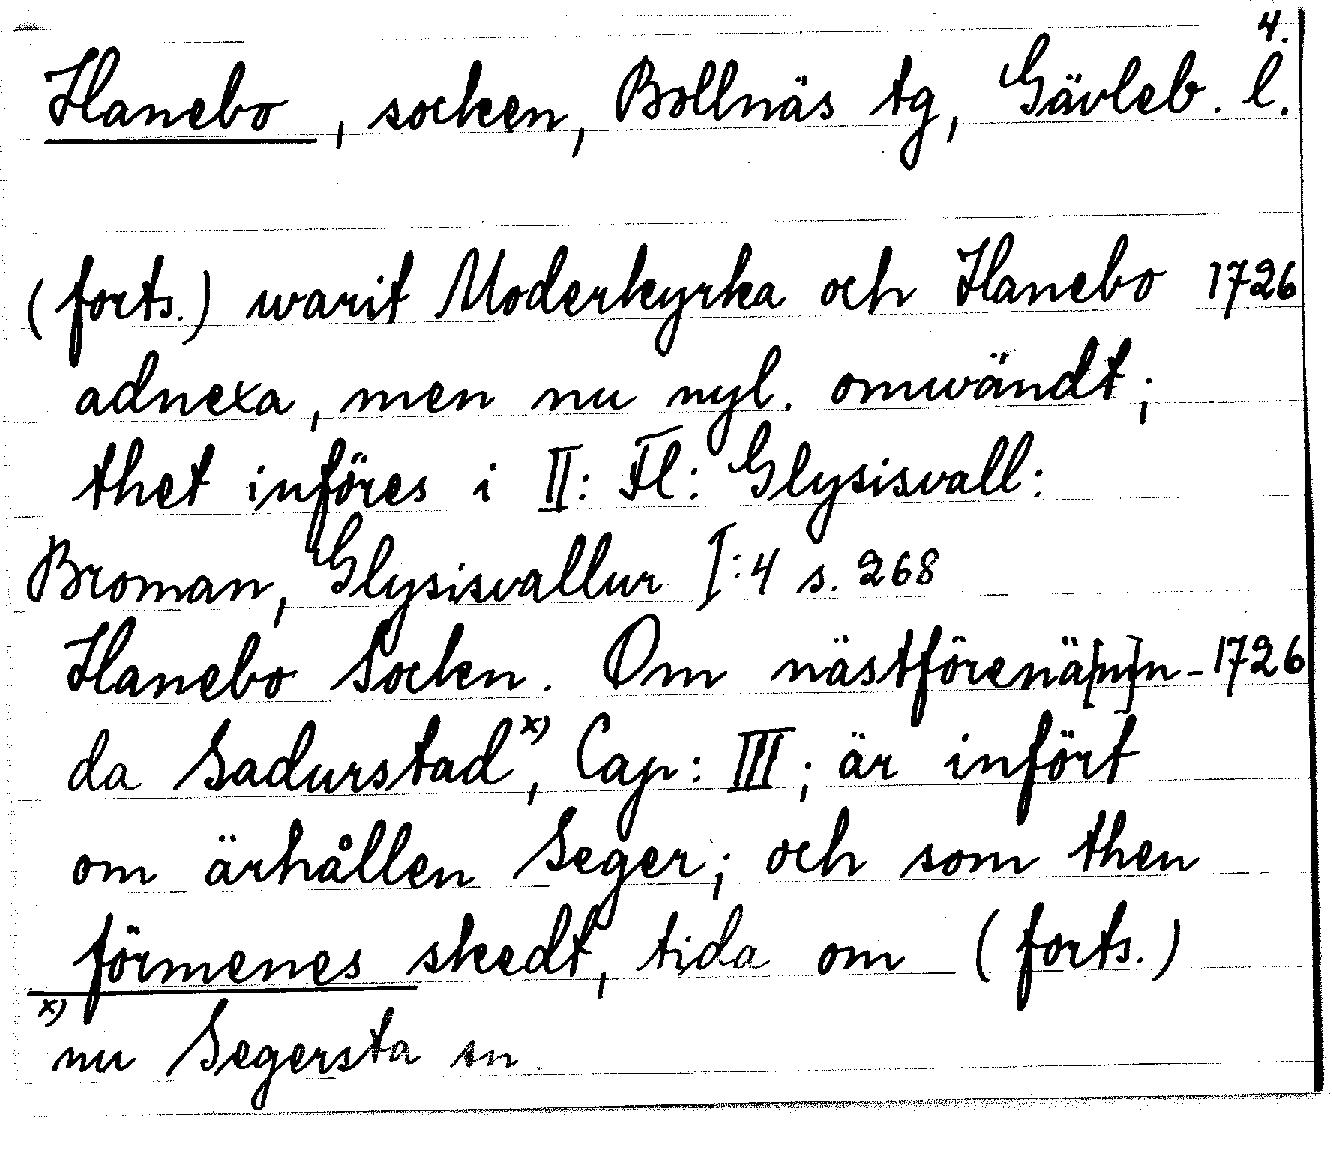 4.
Hanebo, socken, Bollnäs tg, Gävleb. l.
(forts.) warit Moderkyrka och Hanebo 1726
adnexa, men nu nyl. omwändt;
thet införes i II: Fl: Glysisvall:
Broman, Glysisvallur I:4 s. 268
Hanebo Socken. Om nästförenä[n]n- 1726
da Sadurstad x), Cap: III; är infört
om ärhållen Seger; och som then
förmenes skedt, tida om (forts.)
x) nu Segersta sn